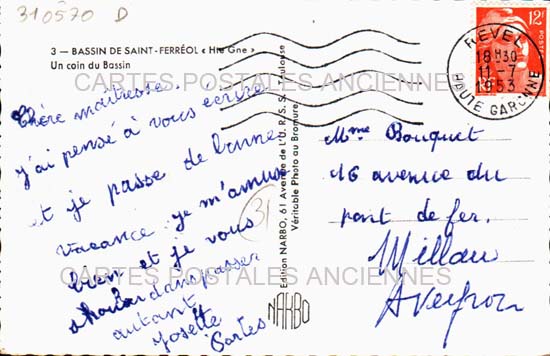 310570 D
3 — BASSIN DE SAINT-FERRÉOL « Hte Gne »
Un coin du Bassin
CARTES POSTALES ANCIENNES
Chère maîtresse.
j'ai pensé à vous écrire
et je passe de bonnes
vacance je m'amuse
bien et je vous
d'en passer
autant
Josette
Cartes
31
Edition NARBO, 61 Avenue de l'U.R.S.S. Toulouse
Véritable Photo au Bromure
NARBO
REVEL
18H30
11-7
1953
HAUTE GARONNE
12F
POSTES
Mme Bouquet
16 avenue du
pont de fer.
Millau
Aveyron
CARTES POSTALES ANCIENNES